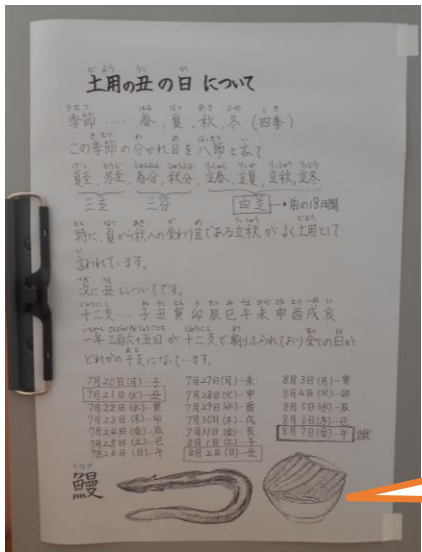 どよう うし ひ
土用の丑の日 について
きせつ はる なつ あき ふゆ しき
季節 ‥‥ 春、夏、秋、冬 (四季)
この季節の分かれ目を八節と言って
夏至、冬至、春分、秋分、立春、立夏、立秋、立冬
前の18日間
特に、夏から秋への変わり目である立秋がよく土用として
言われています。
次に丑についてです。
十二支 … 子丑寅卯辰巳午未申酉戌亥
一年三百六十五日が十二支で割りふられており全ての日が
どれかの干支になっています。
7月20日(月)-子
7月21日(火)-丑
7月22日(水)-寅
7月23日(木)-卯
7月24日(金)-辰
7月25日(土)-巳
7月26日(日)-午
7月27日(月)-未
7月28日(火)-申
7月29日(水)-酉
7月30日(木)-戌
7月31日(金)-亥
8月1日(土)-子
8月2日(日)-丑
8月3日(月)-寅
8月4日(火)-卯
8月5日(水)-辰
8月6日(木)-巳
8月7日(金)-午 立秋
うなぎ
鰻